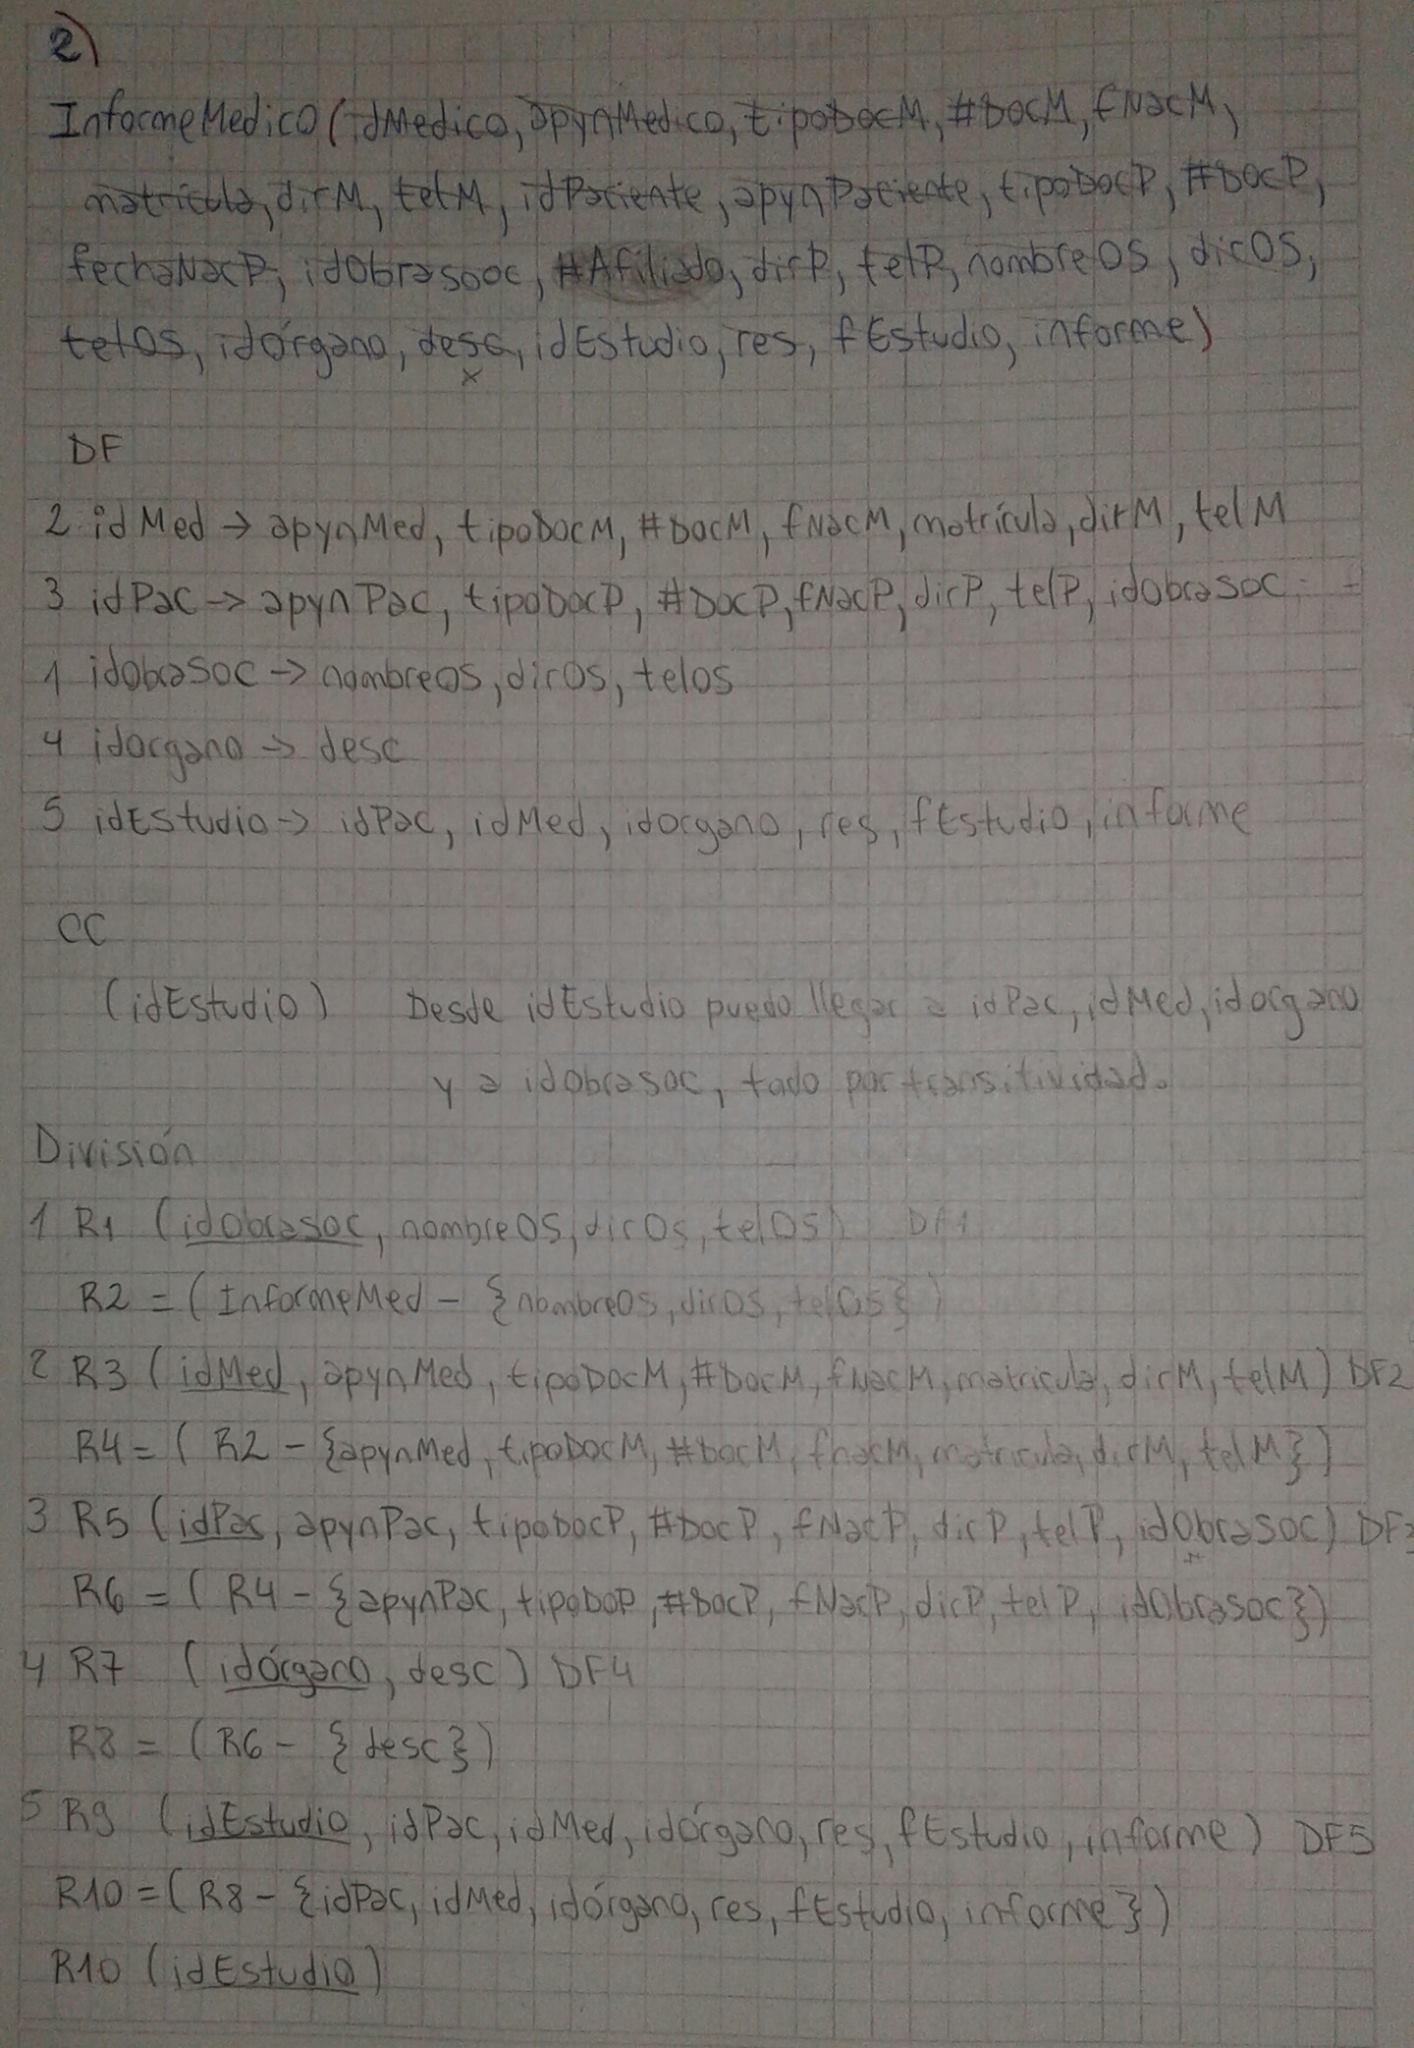 2)
InformeMedico (idMedico, apynMedico, tipoDocM, #DocM, fNacM,
matrícula, dirM, telM, idPaciente, apynPaciente, tipoDocP, #DocP,
fechaNacP, idObrasooc, #Afiliado, dirP, telP, nombreOS, dirOS,
telOS, idórgano, desc, idEstudio, res, fEstudio, informe)
x
DF
2 idMed → apynMed, tipoDocM, #DocM, fNacM, matrícula, dirM, telM
3 idPac → apynPac, tipoDocP, #DocP, fNacP, dirP, telP, idObrasoc
1 idobrasoc → nombreOS, dirOS, telos
4 idorgano → desc
5 idEstudio → idPac, idMed, idorgano, res, fEstudio, informe
CC
(idEstudio) Desde idEstudio puedo llegar a idPac, idMed, idorgano
y a idObrasoc, todo por transitividad.
División
1 R1 (idObrasoc, nombreOS, dirOs, telOS) DF1
R2 = (InformeMed - {nombreOS, dirOS, telOS})
2 R3 (idMed, apynMed, tipoDocM, #DocM, fNacM, matricula, dirM, telM) DF2
R4 = ( R2 - {apynMed, tipoDocM, #DocM, fnacM, matricula, dirM, telM})
3 R5 (idPac, apynPac, tipoDocP, #DocP, fNacP, dirP, telP, idObrasoc) DF3
R6 = ( R4 - {apynPac, tipoDoP, #DocP, fNacP, dirP, telP, idObrasoc})
4 R7 (idórgano, desc) DF4
R8 = (R6 - {desc})
5 R9 (idEstudio, idPac, idMed, idórgano, res, fEstudio, informe) DF5
R10 = (R8 - {idPac, idMed, idórgano, res, fEstudio, informe})
R10 (idEstudio)